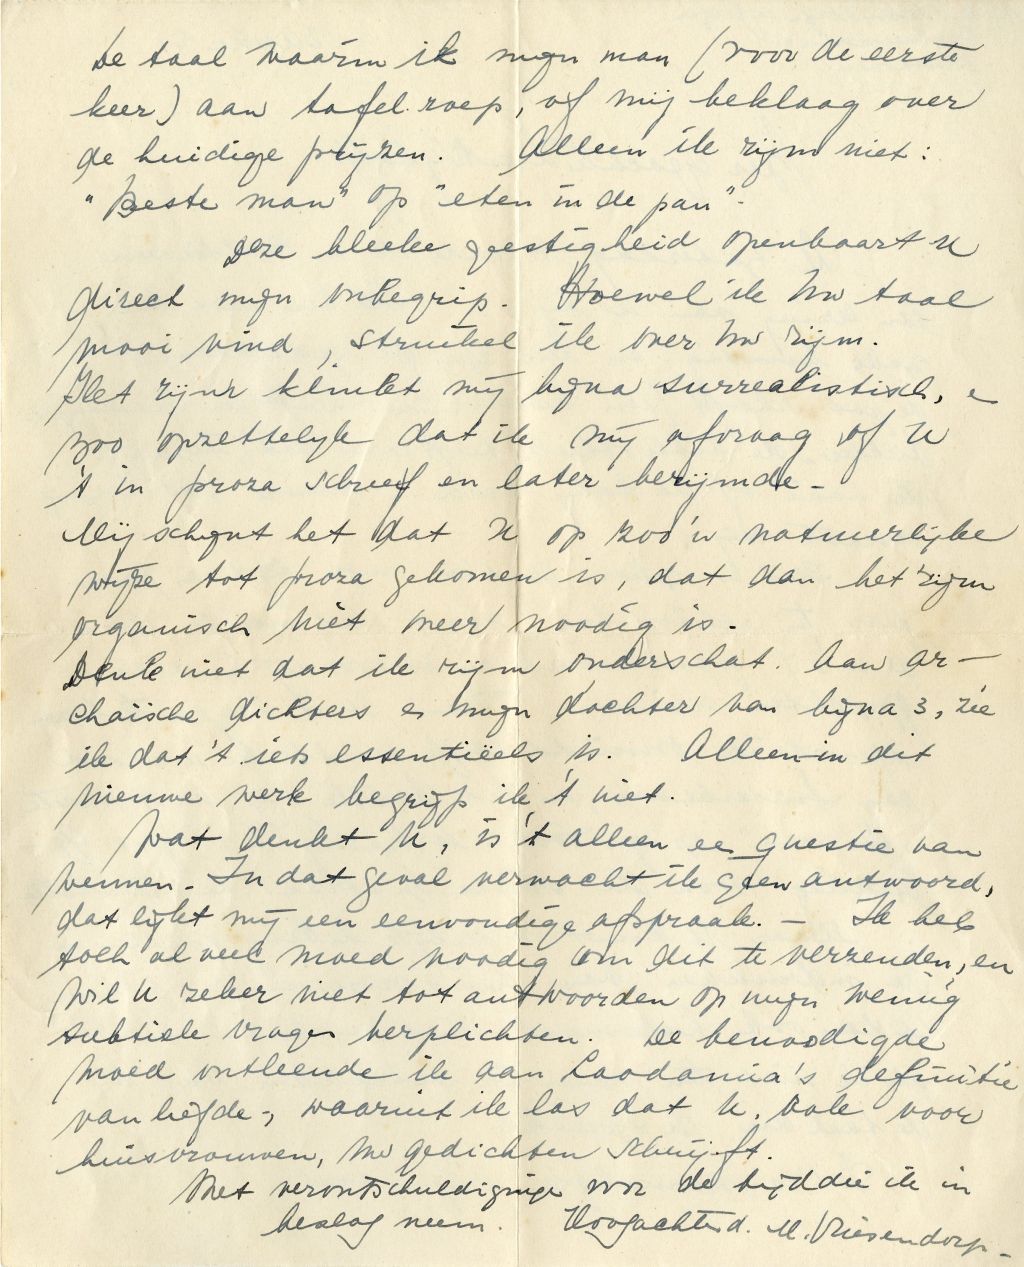 De taal waarin ik mijn man (voor de eerste
keer) aan tafel roep, of mij beklaag over
de huidige prijzen. Alleen ik rijm niet:
"Beste man" op "eten in de pan".
Deze bleeke geestigheid openbaart U
direct mijn onbegrip. Hoewel ik Uw taal
mooi vind, struikel ik over Uw rijm.
Het rijm klinkt mij bijna surrealistisch, e
zoo opzettelijk dat ik mij afvraag of U
't in proza schreef en later berijmde -
Mij schijnt het dat U op zoo'n natuurlijke
wijze tot proza gekomen is, dat dan het rijm
organisch niet meer noodig is.
Denk niet dat ik rijm onderschat. Aan ar-
chaische dichters en mijn dochter van bijna 3, zie
ik dat 't iets essentiëels is. Alleen in dit
nieuwe werk begrijp ik 't niet.
Wat denkt U, is 't alleen een questie van
wennen. In dat geval verwacht ik geen antwoord,
dat lijkt mij een eenvoudige afspraak. - Ik heb
toch al veel moed noodig om dit te verzenden, en
wil U zeker niet tot antwoorden op mijn weinig
subtiele vragen verplichten. De benoodigde
moed ontleende ik aan Laodamia's definitie
van liefde -, waaruit ik las dat U, ook voor
huisvrouwen, Uw gedichten schrijft.
Met verontschuldiging voor de tijd die ik in
beslag neem. Hoogachtend. M. Vriesendorp -